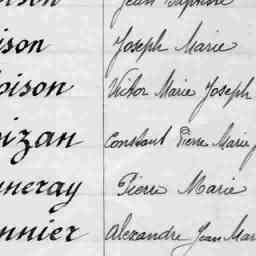 ison Joseph Marie
oison Victor Marie Joseph
izan Constant Pierre Marie
neray Pierre Marie
nnier Alexandre Jean Mar